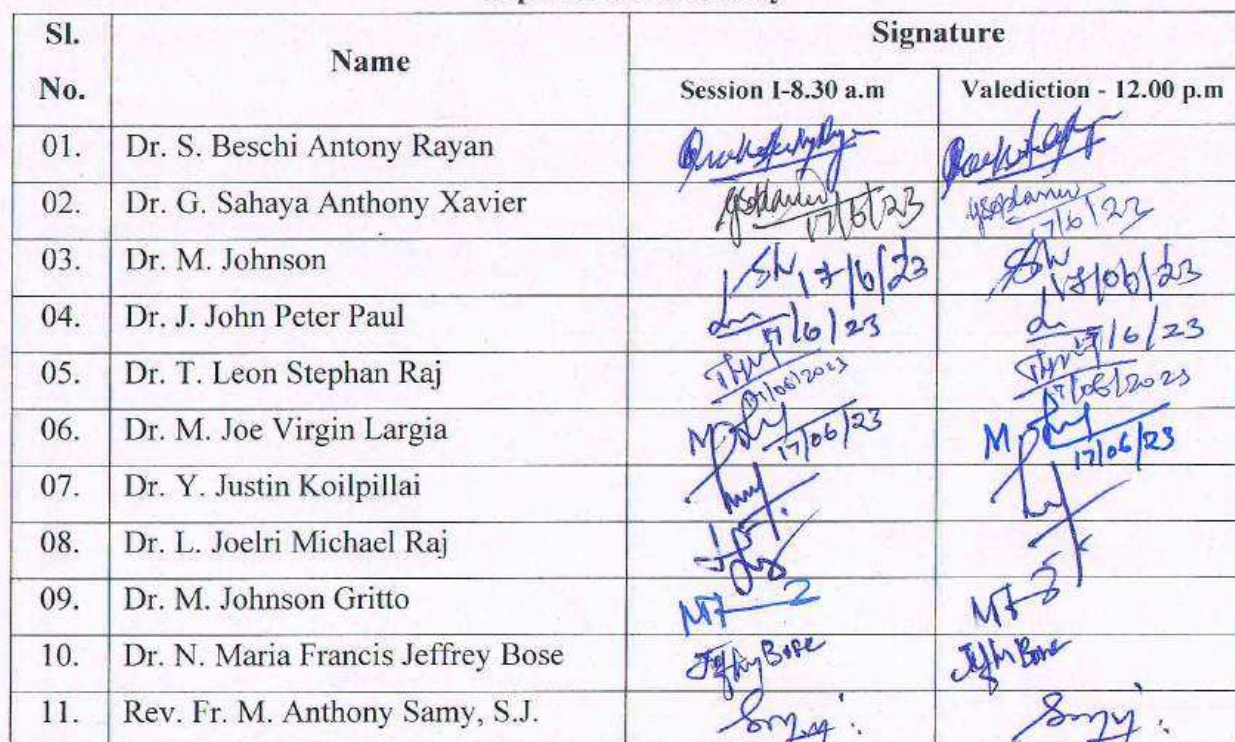 Sl. No. Name Signature
Session I-8.30 a.m Valediction - 12.00 p.m
01. Dr. S. Beschi Antony Rayan
02. Dr. G. Sahaya Anthony Xavier 17/6/23 17/6/23
03. Dr. M. Johnson 17/6/23 17/06/23
04. Dr. J. John Peter Paul 17/6/23 17/6/23
05. Dr. T. Leon Stephan Raj 17/06/2023 17/06/2023
06. Dr. M. Joe Virgin Largia 17/06/23 17/06/23
07. Dr. Y. Justin Koilpillai
08. Dr. L. Joelri Michael Raj
09. Dr. M. Johnson Gritto
10. Dr. N. Maria Francis Jeffrey Bose Jeffrey Bose
11. Rev. Fr. M. Anthony Samy, S.J.